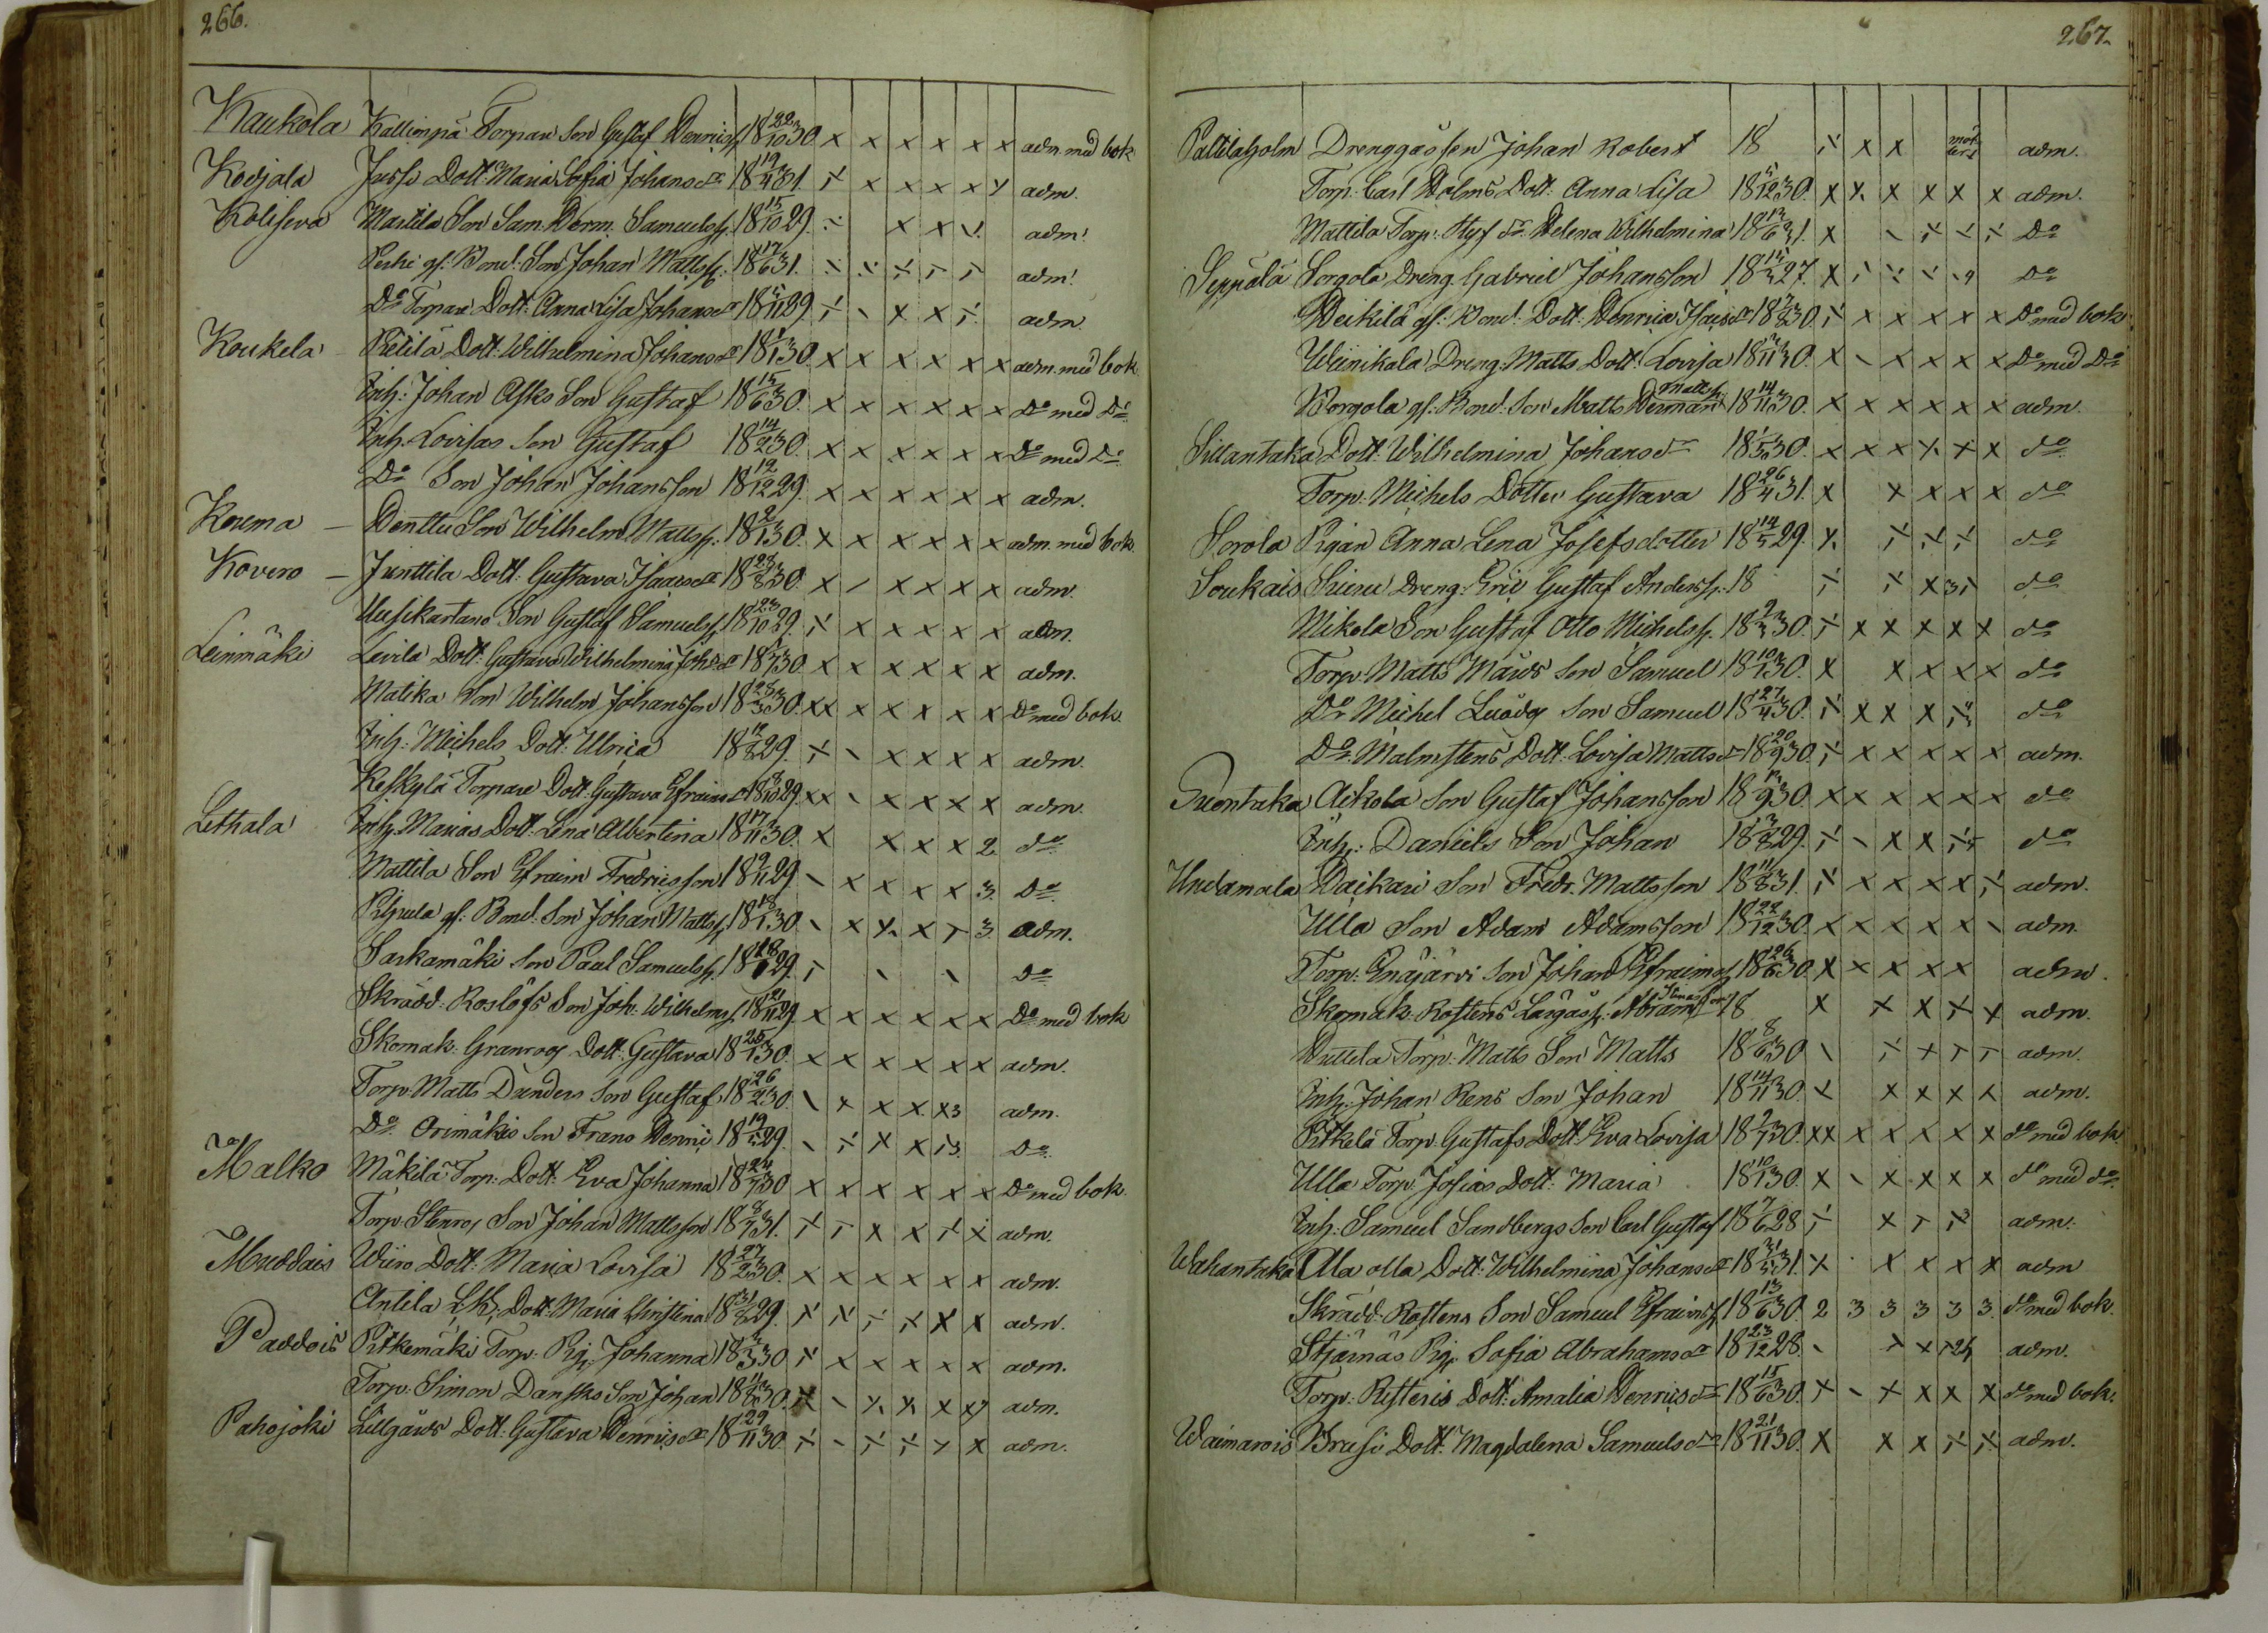 266.
Kaukola Kallionpä Torpare Son Gustaf Henricss. 18 22/10 30. x x x x x x adm. med bok
Kodjala Jussi Dott: Maria Sofia Johansdr 18 19/4 31. x x x x x adm.
Koliseva Marttila Son Sam. Herm. Samuelss. 18 15/10 29. x x adm.
gf. Bond. Son Johan Mattss. 18 17/6 31. adm.
Do Torpare Dott: Anna Lisa Johansdr 18 5/11 29 x x adm.
Koukela Pietilä Dott: Wilhelmina Johansdr 18 1/1 30. x x x x x x adm. med bok
Inh: Johan Asks Son Gustaf 18 15/6 30. x x x x x x Do med Do
Inh. Lovisas Son Gustaf 18 14/2 30. x x x x x x Do med Do
Do Son Johan Johansson 18 12/12 29. x x x x x x adm.
Kouma — Henttu Son Wilhelm Mattss. 18 2/1 30. x x x x x x adm. med bok
Kovero — Junttila Dott: Gustava Isaacsdr 18 28/8 30. x x x x x adm.
Uusikartano Son Gustaf Samuelss. 18 23/10 29. x x x x x adm.
Leinmäki Levilä Dott: Gustava Wilhelmina Johsdr 18 /7 30. x x x x x x adm.
Matika Son Wilhelm Johansson 18 28/3 30. xx x x x x x Do med bok.
Inh: Michels Dott: Ulrica 18 12/8 29. x x x x adm.
Keskylä Torpare Dott: Gustava Efraimsdr 18 /10 29. xx x x x x adm.
Lethala Inh. Marias Dott. Lena Albertina 18 17/11 30. x x x x 2. do
Mattila Son Efraim Fredricsson 18 9/11 29 x x x x 3. Do
gf. Bond: Son Johan Mattss. 18 18/1 30. x x x 3. adm.
Sarkamäki Son Paul Samuelss. 18 18/1 29. Do
Skrädd: Roslöfs Son Joh. Wilhelms 18 21/11 29. x x x x x x Do med bok
Skomak: Granroos Dott: Gustava 18 25/1 30. x x x x x x adm.
Torp. Matts Danders Son Gustaf 18 26/2 30. x x x x3 adm.
Do Orimäkis Son Frans Henric 18 19/5 29. x x Do
Malko Mäkilä Torp: Dott: Eva Johanna 18 24/7 30 x x x x x x Do med bok.
Torp. Stenros Son Johan Mattsson 18 8/7 31. x x adm.
Muddais Wiiro Dott: Maria Lovisa 18 27/2 30. x x x x x x adm.
Antila Dott: Maria Christina 18 31/8 29. x x adm.
Paddois Pitkemäki Torp: Pig. Johanna 18 3/3 30 x x x x x adm.
Torp. Simon Dansks Son Johan 18 11/8 30. adm.
Pahojoki Lillgårds Dott: Gustava Henricsdr 18 29/11 30. x adm.
267.
Paltilaholm Drenggåssen Johan Robert 18 x x adm.
Torp. Carl Holms Dott: Anna Lisa 18 5/12 30. x x x x x x adm.
Mattila Torp: Styfdr Helena Wilhelmina 18 13/6 31. x Do
Seppälä Sorgola Dreng. Gabriel Johansson 18 15/5 27. x Do
Heikilä gf. Bond: Dott: Henrica Isacsdr 18 7/8 30. x x x x x Do med bok
Weinikala Dreng: Matts Dott: Lovisa 18 3/11 30. x x x x x Do med Do
Borgola gf. Bond: Son Matts Herman Mattss. 18 14/11 30. x x x x x x adm.
Sillantaka Dott: Wilhelmina Johansdr 18 1/5 30. x x x x x x do
Torp. Michels Dotter Gustava 18 26/4 31. x x x x x do
Sorola Pigan Anna Lena Josefsdotter 18 14/5 29. x. do
Soukais Dreng: Eric Gustaf Anderss. 18 x 3 do
Mikola Son Gustaf Otto Michelss. 18 2/3 30. x x x x x do
Torp. Matts Mårds Son Samuel 18 10/1 30. x x x x x do
Do Michel Son Samuel 18 27/4 30. x x x do
Do Malmstens Dott: Lovisa Mattsdr 18 20/9 30. x x x x x adm.
Suontaka Aikola Son Gustaf Johansson 18 13/9 30. x x x x x x do
Inh: Daniels Son Johan 18 3/8 29. x x do
Undamala Haikari Son Fredr. Mattsson 18 11/8 31. x x x x adm.
Ulla Son Adam Adamsson 18 22/12 30. x x x x x adm.
Torp. Enäjärvi Son Johan Efraims 18 26/6 30. x x x x x adm.
Skomak. Rostens Lärgåss. Abram 18 x x x x x adm.
Huttila Torp. Matts Son Matts 18 8/6 30 x adm.
Inh. Johan Rens Son Johan 18 14/11 30. x x x x x adm.
Pitkelä Torp. Gustafs Dott: Eva Lovisa 18 2/7 30. xx x x x x x do med bok
Ulla Torp. Josias Dott: Maria 18 10/1 30. x x x x x do med do
Inh: Samuel Sandbergs Son Carl Gustaf 18 7/6 28 x adm.
Wahantaka Olla olla Dott: Wilhelmina Johansdr 18 31/5 31. x x x x x adm
Skrädd: Rostens Son Samuel Efraimss. 18 13/6 30. 2 3 3 3 3 3. do med bok.
Stjärnäs Pig. Sofia Abrahamsdr 18 23/12 28. x x adm.
Torp: Risteris Dott: Amalia Henricsdr 18 15/6 30. x x x x x do med bok.
Waimarois Brusi Dott: Magdalena Samuelsdr 18 21/11 30. x x x adm.